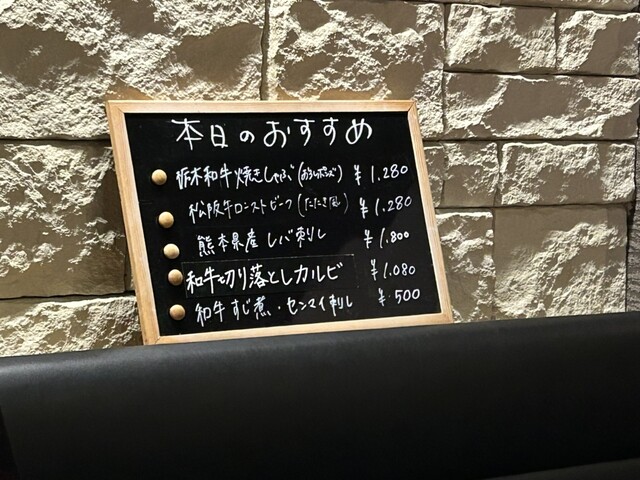 本日のおすすめ
栃木和牛焼きしゃぶ(おろしポンズ) ¥1.280
松阪牛ローストビーフ(たたき風) ¥1.280
熊本県産レバ刺し ¥1.800
和牛切り落としカルビ ¥1.080
和牛すじ煮・センマイ刺し ¥.500